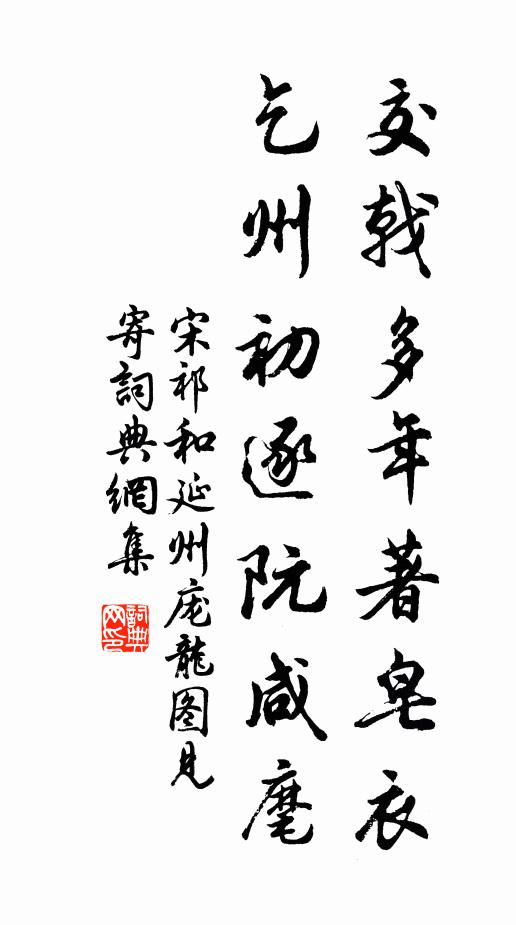 交戟多年著皂衣
乞州初逐阮咸麾
宋祁和延州庞龍图見
寄詞典網集
詞典网印